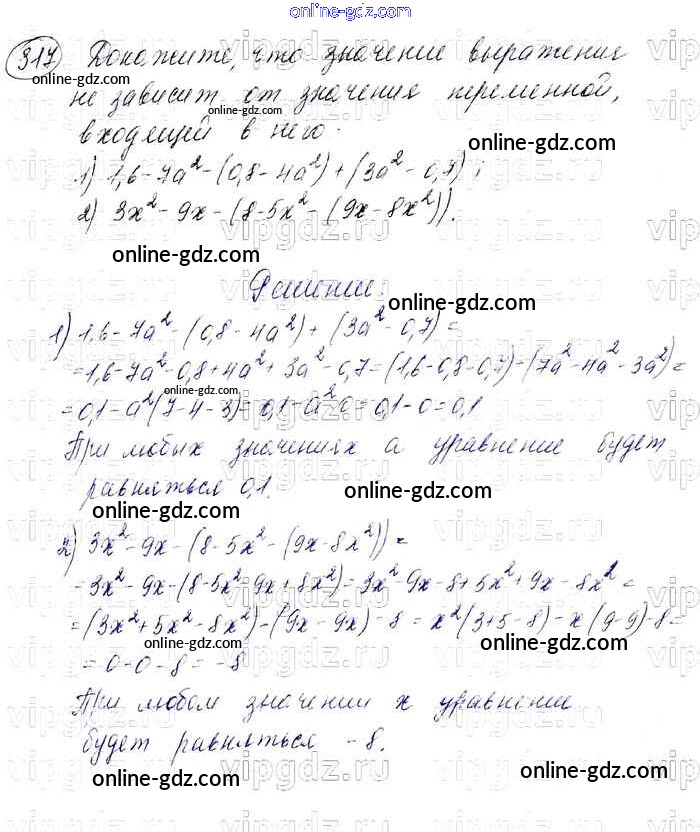 online-gdz.com
317 Докажите, что значение выражения
online-gdz.com
не зависит от значения переменной,
входящей в него.
online-gdz.com
1) 1,6-7a²-(0,8-4a²)+(3a²-0,7);
2) 3x²-9x-(8-5x²-(9x-8x²)).
online-gdz.com
Решение:
online-gdz.com
1) 1,6-7a²-(0,8-4a²)+(3a²-0,7)=
=1,6-7a²-0,8+4a²+3a²-0,7=(1,6-0,8-0,7)-(7a²-4a²-3a²)=
online-gdz.com
=0,1-a²(7-4-3)=0,1-a²·0=0,1-0=0,1
При любых значениях a уравнение будет
равняться 0,1.
online-gdz.com
online-gdz.com
2) 3x²-9x-(8-5x²-(9x-8x²))=
=3x²-9x-(8-5x²-9x+8x²)=3x²-9x-8+5x²+9x-8x²=
=(3x²+5x²-8x²)-(9x-9x)-8=x²(3+5-8)-x(9-9)-8=
online-gdz.com
online-gdz.com
=0-0-8=-8
При любом значении x уравнение
будет равняться -8.
online-gdz.com
online-gdz.com
vipgdz.ru